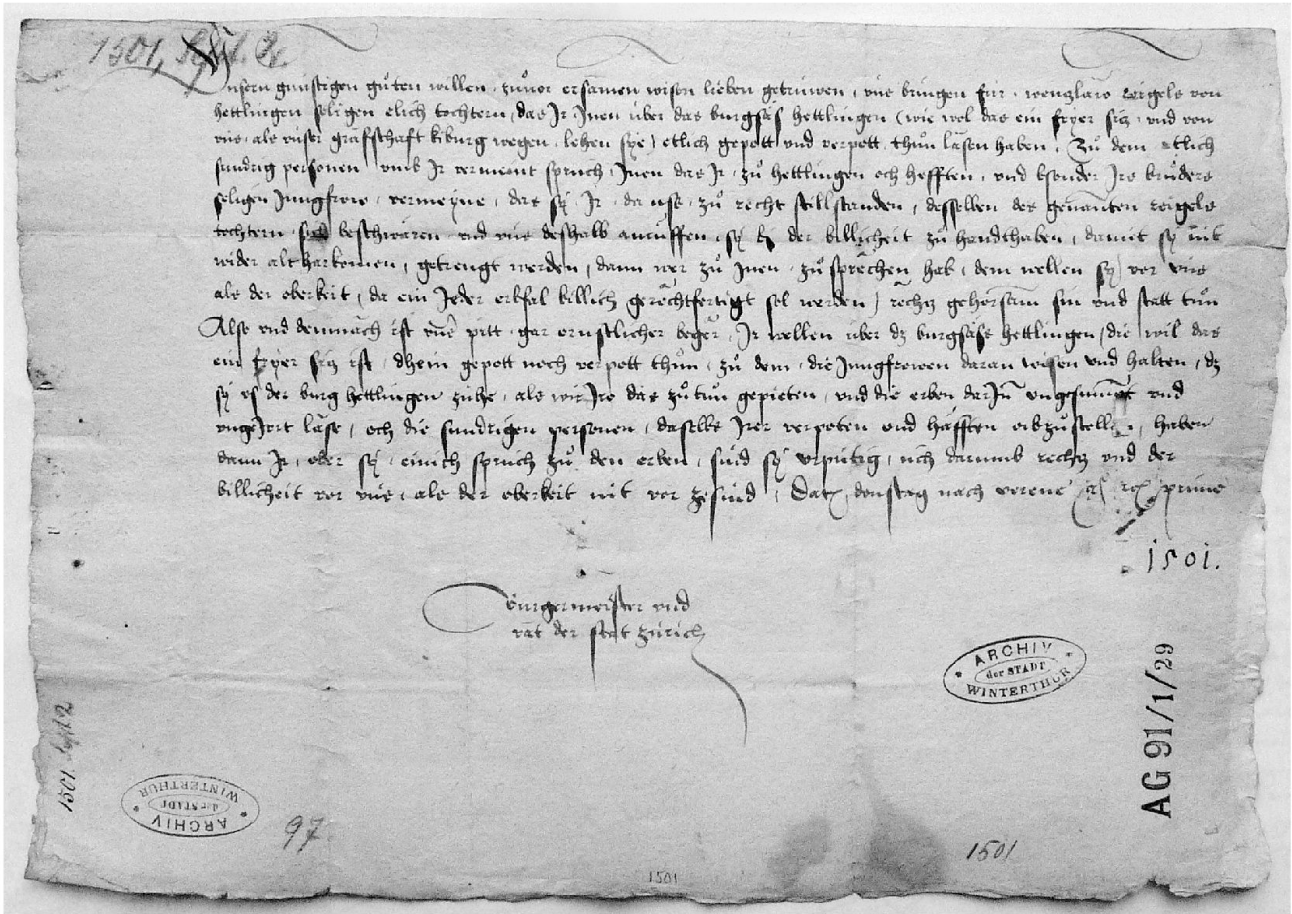 1501, Sept. 2.
Unsern günstigen gůten willen zůvor ersamen wisen lieben getrüwen, uns bringen für wenzlaw reigels von
hettlingen seligen elich tochtern, das Ir Inen über das burgsäs hettlingen (wie wol das ein fryer siz und von
uns als unser graffschaft kiburg wegen lehen sye) etlich gepott und verpott thůn läsen haben, Zů dem etlich
sundrig personen umb Ir vermeint sprüch Inen das Ir zů hettlingen och hefften, und bsonder Irs brůders
seligen Jungfrow vermeyne, das sy Ir da use zů recht stillstanden, desselben des genanten reigels
tochtern beschwären und uns deshalb anrüffen sy by der billicheit zů handthaben, damit sy nit
wider altharkomen getrengt werden, dann wer zů Inen zů sprechen hab, dem wellen sy vor uns
als der oberkeit, da ein Jeder erbfal billich gerechtfertigt sol werden) rechtz gehorsam sin und statt tůn
Also und demnach ist unser pitt gar ernstlicher beger, Ir wellen über dz burgsäss hettlingen, die wil das
ein fryer siz ist, dhein gepott noch verpott thůn, zů dem die Jungfrowen daran wisen und halten, dz
sy us der burg hettlingen zühe, als wir Iro das zůtůn gepieten, und die erben darInn ungesumpt und
ungeJrrt lässe, och die sundrigen personen, daselbs Irer verpoten und häfften abzůstellen, haben
dann Ir, oder sy einich sprüch zů den erben, sind sy urpütig, üch darumb rechtz und der
billicheit vor uns, als der oberkeit nit vor zesind, Datum donstag nach verene prima
1501.
Burgermeister und
rät der statt zürich
ARCHIV
der STADT
WINTERTHUR
AG 91/1/29
1501 Sept 2
ARCHIV
der STADT
WINTERTHUR
97
1501
1501